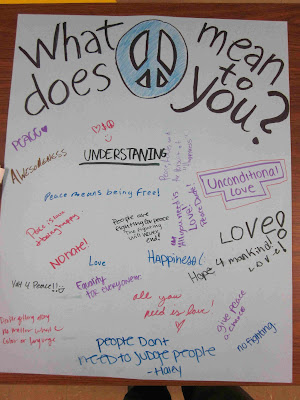 What mean
does to
you?
PEACE
Awesomeness
UNDERSTANING
Unconditional
Love
Peace means being Free!
People are
fighting for peace
the fighting
will never
end!
All you need is
LOVE! Dude
Peace Dude
LOVE!
Peace is love
+ being happy
NO HATE!
Love
Happiness(:
Hope 4 mankind!
Love!
Yay 4 Peace!!
Equality
for everyone.
all you
need is love!
give peace
a chance
no fighting
no matter what
color or language
people Dont
need to judge people
-Haley